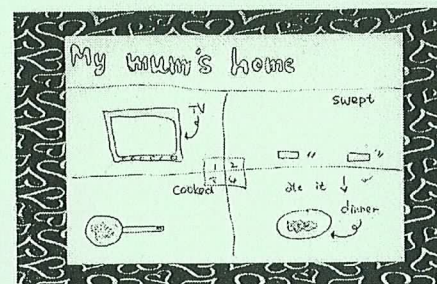 My mum's home
TV
swept
1 2
3 4
cooked
Ate it
dinner